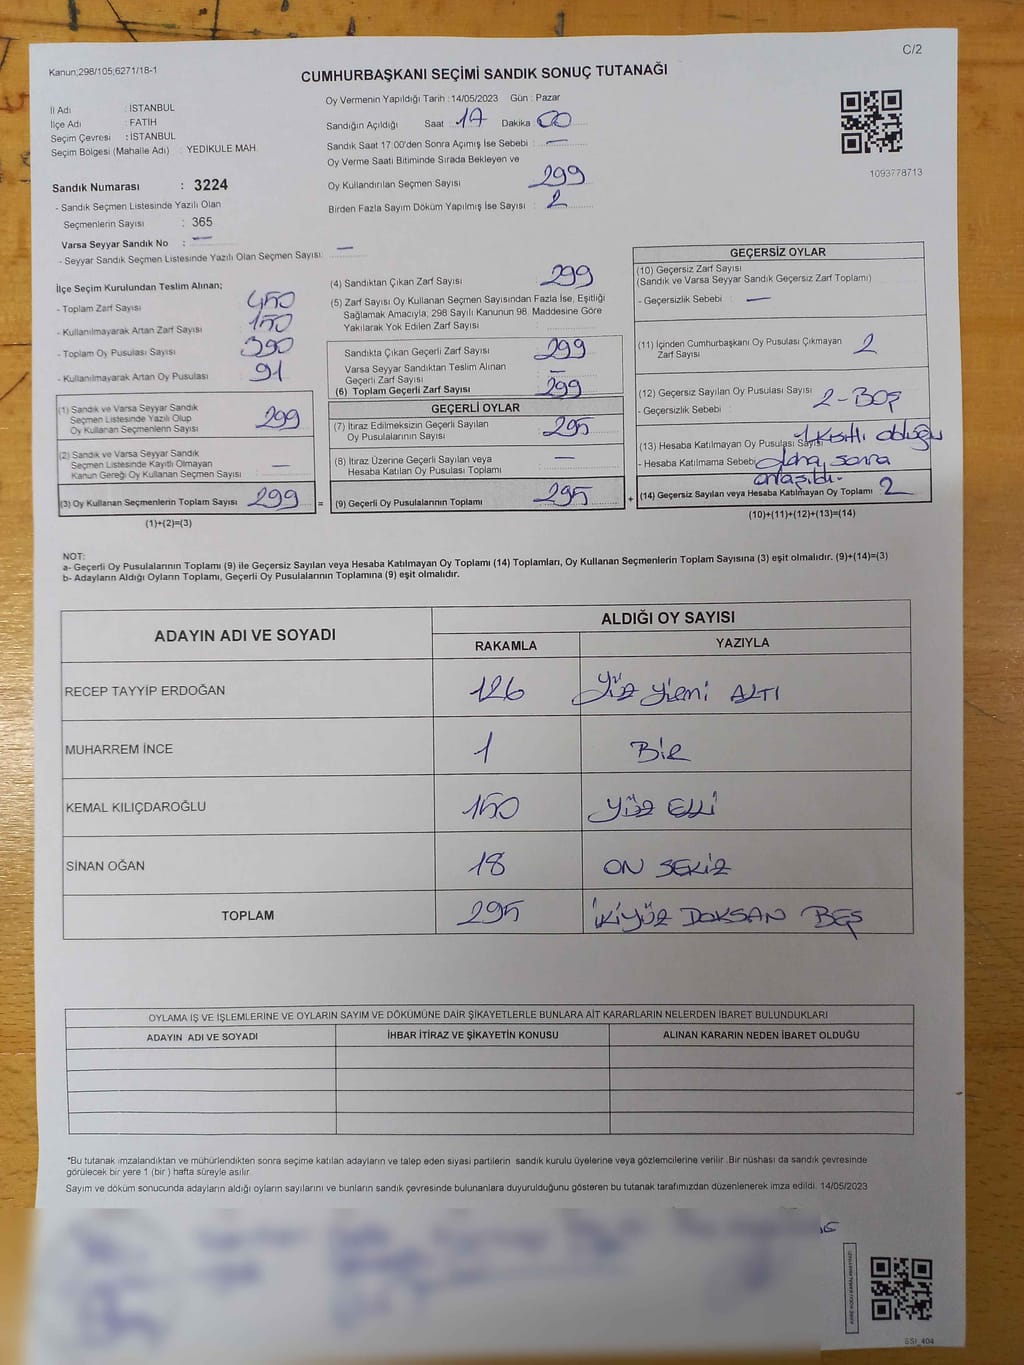 C/2
Kanun;298/105;6271/18-1
CUMHURBAŞKANI SEÇİMİ SANDIK SONUÇ TUTANAĞI
İl Adı : İSTANBUL
İlçe Adı : FATİH
Seçim Çevresi : İSTANBUL
Seçim Bölgesi (Mahalle Adı) : YEDİKULE MAH.
Sandık Numarası : 3224
- Sandık Seçmen Listesinde Yazılı Olan
Seçmenlerin Sayısı : 365
Varsa Seyyar Sandık No : —
- Seyyar Sandık Seçmen Listesinde Yazılı Olan Seçmen Sayısı: —
Oy Vermenin Yapıldığı Tarih :14/05/2023 Gün : Pazar
Sandığın Açıldığı Saat : 17 Dakika 00
Sandık Saat 17:00'den Sonra Açımış İse Sebebi : —
Oy Verme Saati Bitiminde Sırada Bekleyen ve
Oy Kullandırılan Seçmen Sayısı 299
Birden Fazla Sayım Döküm Yapılmış İse Sayısı : 2
1093778713
İlçe Seçim Kurulundan Teslim Alınan;
- Toplam Zarf Sayısı 450
- Kullanılmayarak Artan Zarf Sayısı 150
- Toplam Oy Pusulası Sayısı 390
- Kullanılmayarak Artan Oy Pusulası 91
(1) Sandık ve Varsa Seyyar Sandık
Seçmen Listesinde Yazılı Olup
Oy Kullanan Seçmenlerin Sayısı 299
(2) Sandık ve Varsa Seyyar Sandık
Seçmen Listesinde Kayıtlı Olmayan
Kanun Gereği Oy Kullanan Seçmen Sayısı —
(3) Oy Kullanan Seçmenlerin Toplam Sayısı 299 =
(1)+(2)=(3)
(4) Sandıktan Çıkan Zarf Sayısı 299
(5) Zarf Sayısı Oy Kullanan Seçmen Sayısından Fazla İse, Eşitliği
Sağlamak Amacıyla; 298 Sayılı Kanunun 98. Maddesine Göre
Yakılarak Yok Edilen Zarf Sayısı :
Sandıkta Çıkan Geçerli Zarf Sayısı 299
Varsa Seyyar Sandıktan Teslim Alınan
Geçerli Zarf Sayısı —
(6) Toplam Geçerli Zarf Sayısı 299
GEÇERLİ OYLAR
(7) İtiraz Edilmeksizin Geçerli Sayılan
Oy Pusulasının Sayısı 295
(8) İtiraz Üzerine Geçerli Sayılan veya
Hesaba Katılan Oy Pusulası Toplamı —
(9) Geçerli Oy Pusulalarının Toplamı 295 +
GEÇERSİZ OYLAR
(10) Geçersiz Zarf Sayısı
(Sandık ve Varsa Seyyar Sandık Geçersiz Zarf Toplamı)
- Geçersizlik Sebebi : —
(11) İçinden Cumhurbaşkanı Oy Pusulası Çıkmayan
Zarf Sayısı 2
(12) Geçersiz Sayılan Oy Pusulası Sayısı 2-BOŞ
- Geçersizlik Sebebi :
(13) Hesaba Katılmayan Oy Pusulası Sayısı 1 Kısıtlı olduğu
- Hesaba Katılmama Sebebi daha sonra
anlaşıldı.
(14) Geçersiz Sayılan veya Hesaba Katılmayan Oy Toplamı 2
(10)+(11)+(12)+(13)=(14)
NOT:
a- Geçerli Oy Pusulalarının Toplamı (9) ile Geçersiz Sayılan veya Hesaba Katılmayan Oy Toplamı (14) Toplamları, Oy Kullanan Seçmenlerin Toplam Sayısına (3) eşit olmalıdır. (9)+(14)=(3)
b- Adayların Aldığı Oyların Toplamı, Geçerli Oy Pusulalarının Toplamına (9) eşit olmalıdır.
ADAYIN ADI VE SOYADI ALDIĞI OY SAYISI
RAKAMLA YAZIYLA
RECEP TAYYİP ERDOĞAN 126 Yüz yirmi ALTI
MUHARREM İNCE 1 BİR
KEMAL KILIÇDAROĞLU 150 YÜZ ELLİ
SİNAN OĞAN 18 ON SEKİZ
TOPLAM 295 İKİYÜZ DOKSAN BEŞ
OYLAMA İŞ VE İŞLEMLERİNE VE OYLARIN SAYIM VE DÖKÜMÜNE DAİR ŞİKAYETLERLE BUNLARA AİT KARARLARIN NELERDEN İBARET BULUNDUKLARI
ADAYIN ADI VE SOYADI İHBAR İTİRAZ VE ŞİKAYETİN KONUSU ALINAN KARARIN NEDEN İBARET OLDUĞU
*Bu tutanak imzalandıktan ve mühürlendikten sonra seçime katılan adayların ve talep eden siyasi partilerin sandık kurulu üyelerine veya gözlemcilerine verilir .Bir nüshası da sandık çevresinde
görülecek bir yere 1 (bir ) hafta süreyle asılır.
Sayım ve döküm sonucunda adayların aldığı oyların sayılarını ve bunların sandık çevresinde bulunanlara duyurulduğunu gösteren bu tutanak tarafımızdan düzenlenerek imza edildi. 14/05/2023
SSİ_404